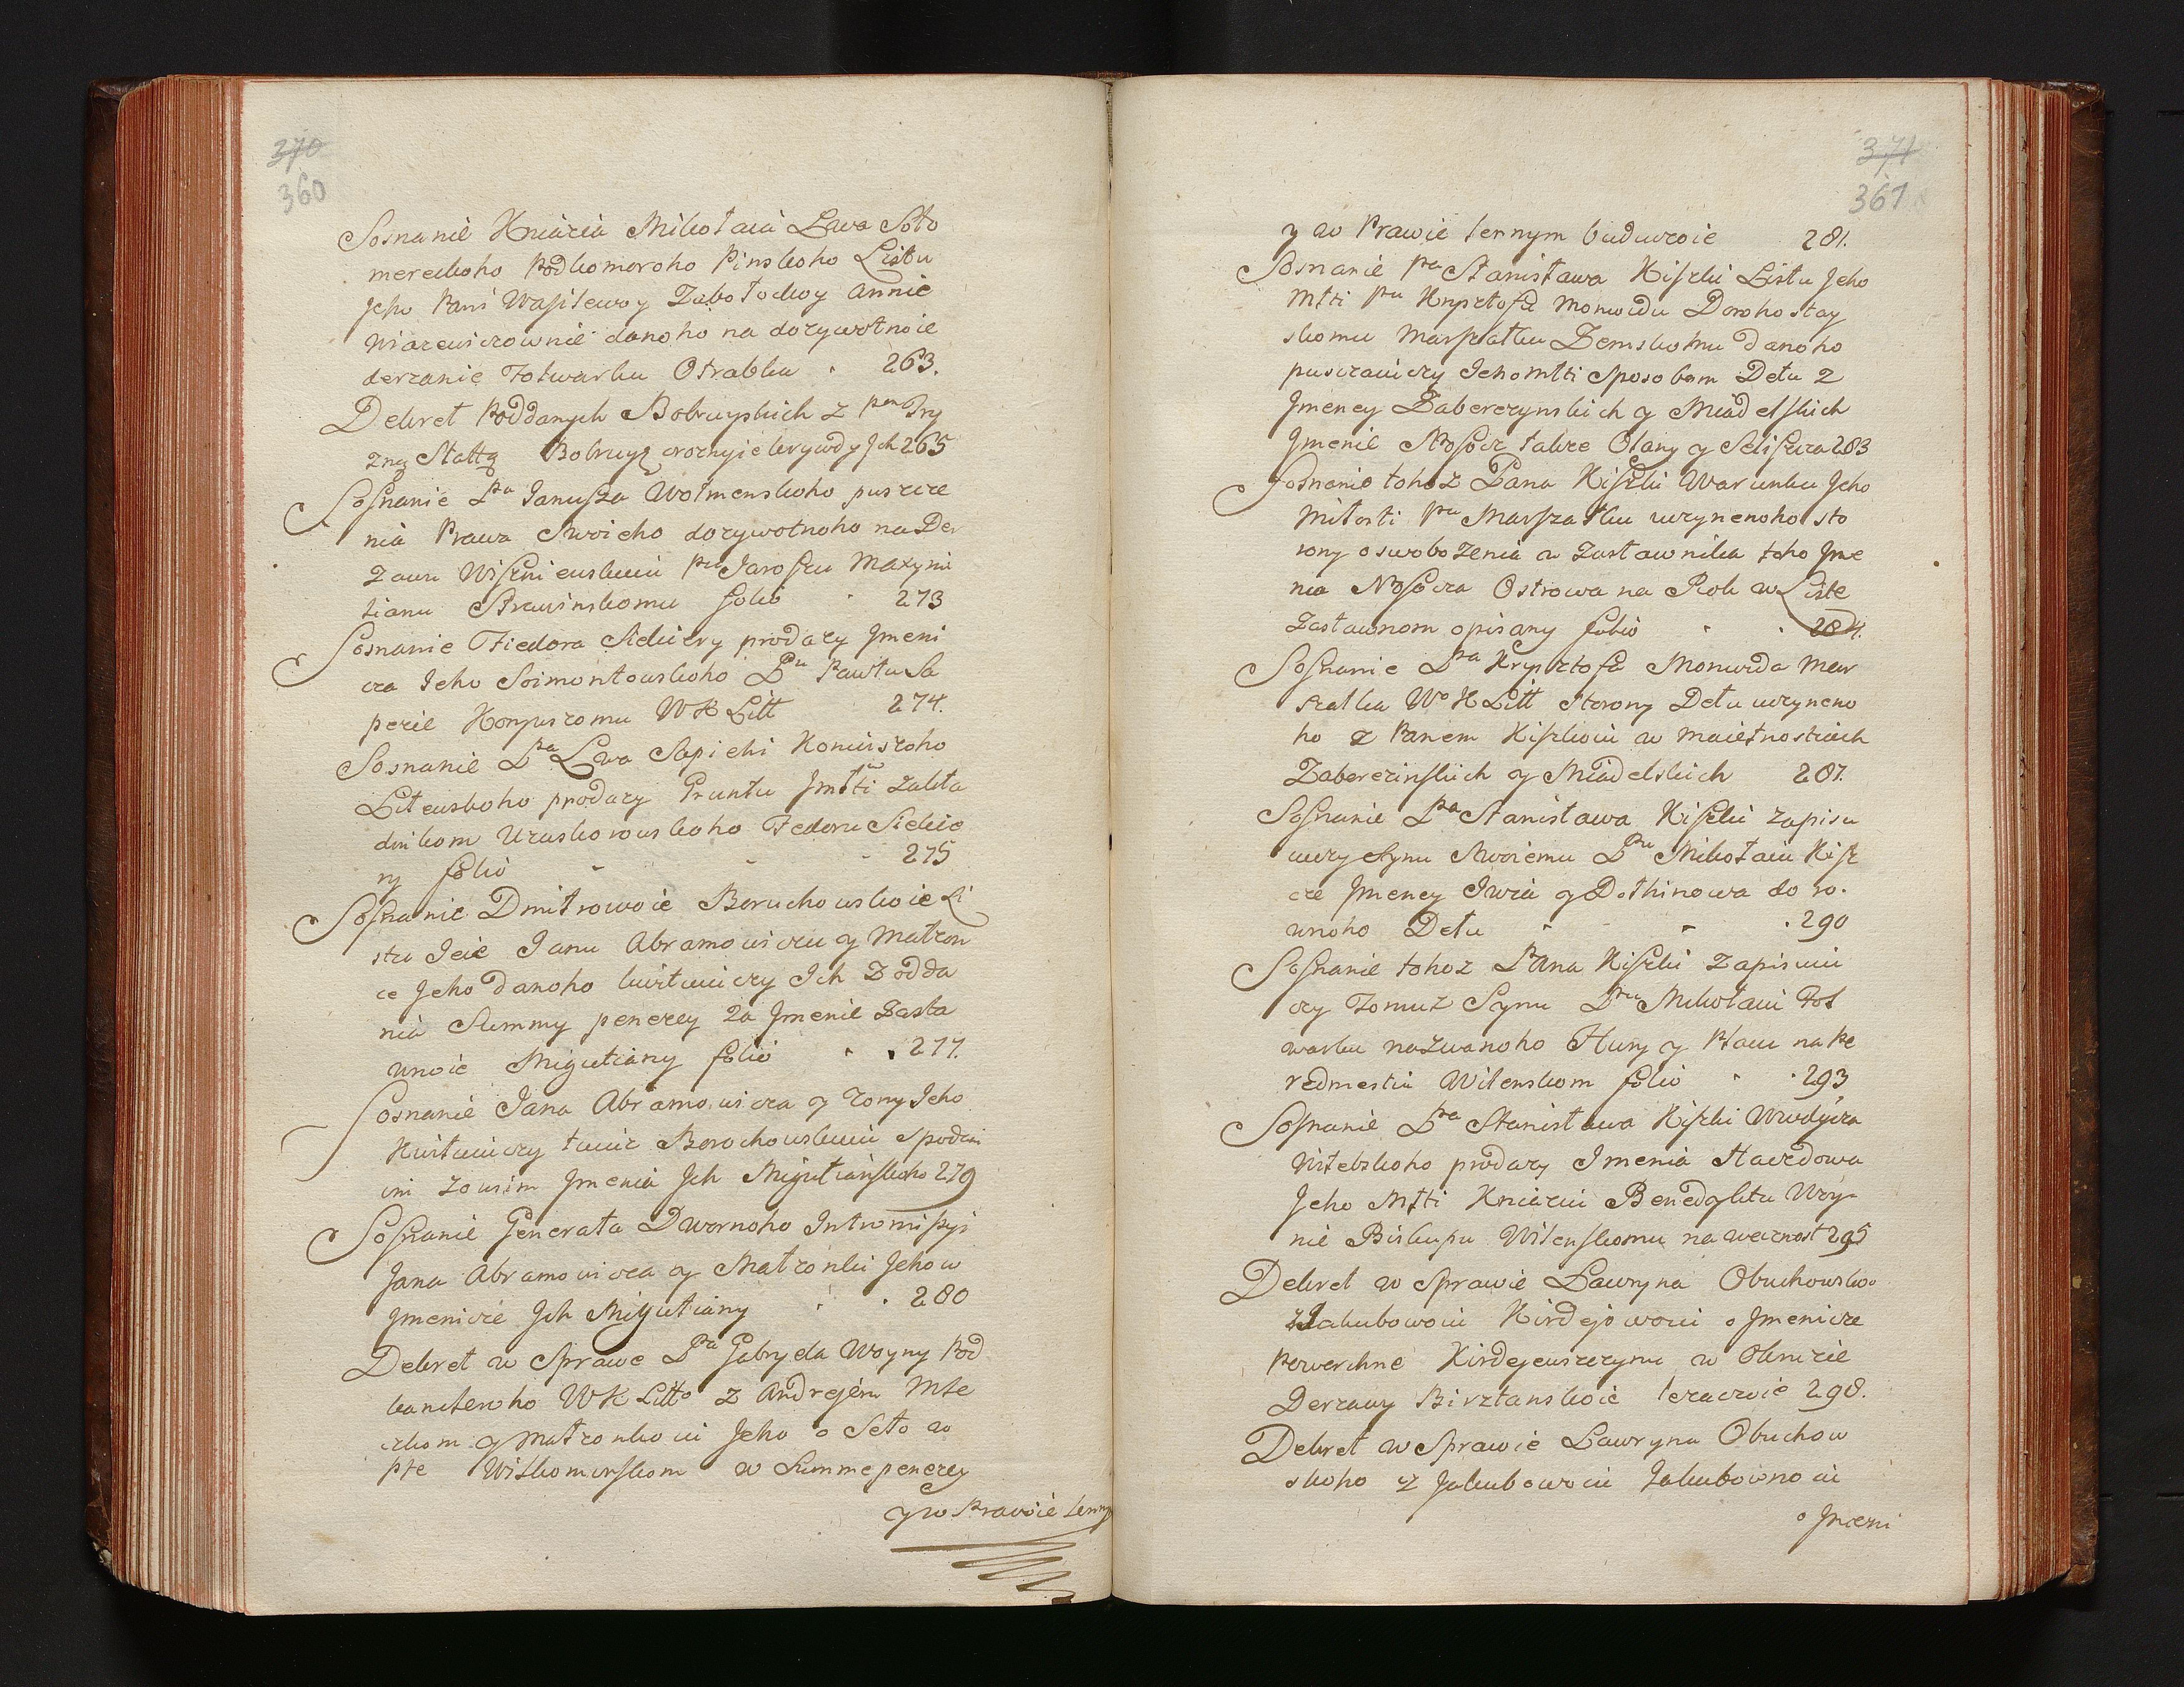 370
360
Sosnanie Kniazia Mikołaia Lwa Soło
mereckoho Podkomoroho Pinskoho Listu
Jeho Pani Wasilewoy Zabołockoy Annie
Niarewiczownie danoho na dozywotnoie
derzanie Fołwarku Otrabku 263.
Dekret Poddanych Bobruyskich z
Bobruy Jch 265
Sosnanie Pna Janusza Wołmenskoho puszcze
nia Prawa Swoieho dozywotnoho na Der
zawu Wiszniewskuiu Pnu Jaroszu Maxymi
lianu Strawinskomu folio 273
Sosnanie Fiedora Siekiery prodazy Jmeni
cza Jeho Soimontowskoho Pnu Pawłu Sa
pezie Koniuszomu WK Litt 274.
Sosnanie Pna Lwa Sapiehi Koniuszoho
Litewskoho prodazy Gruntu Jmtti zakła
dnikom Uzuskorouskoho Fedoru Siekie
ry folio 275
Sosnanie Dmitrowoie Boruchowskoie Li
stu Jeie Janu Abramowiczu y Małzon
ce Jeho danoho kwituiuczy Jch z odda
nia Summy penezey za Jmenie Zasta
wnoie Migutiany folio 277.
Sosnanie Jana Abramowicza y zony Jeho
Kwituiuczy tuiuz Borochowskuiu spodan
im zo wsim Jmenia Jch Migutianskoho 279
Sosnanie Generała Dwornoho Intromissyi
Jana Abramowicza y Małzonki Jeho w
Jmenicze Jch Migutiany 280
Dekret w Sprawe Pna Gabryela Woyny Pod
kancleroho WK Litto z Andrejem Mle
czkom y małzonkoiu Jeho o Seło w
pte Wiłkomirskom w Summe penezey
y w Prawie lenny
371
361
y w Prawie lennym buduczoie 281.
Sosnanie Pna Stanisława Kiszki Listu Jeho
Mtti Pnu Krysztofu Monwidu Dorohostay
skomu Marszałku Zemskomu danoho
pusczaiuczy Jehomtti Sposobom Dełu z
Jmeney Zaberezynskich y Miadelskich
Jmenie Nosow takze Olany y Seliszcza 283
Sosnanie tohoz Pana Kiszki Warunku Jeho
Miłosti Pnu Marszałku uczynenoho sto
rony oswobozenia a Zastawnika toho Jme
nia Nosowa Ostrowa na Rok w Liste
Zastawnom opisany folio 284.
Sosnanie Pna Krysztofa Monwida Mar
szałka Wo K Litt storony Dełu uczyneno
ho z Panem Kiszkoiu w Maiętnostiach
Zaberezinskich y Miadelskich 287.
Sosnanie Pna Stanisława Kiszki zapisu
iuczy Synu Swoiemu Pnu Mikołaiu Kisz
cze Jmeney Iwia y Dołhinowa do ro.
wnoho Dełu 290
Sosnanie tohoz Pana Kiszki zapisuiu
czy Tomuz Synu Pnu Mikołaiu Foł
warku nazwanoho Hury y Płacu na Pe
redmestiu Wilenskom folio 293
Sosnanie Pna Stanisława Kiszki Wwdycza
Witebskoho prodazy Jmenia Hacedowa
Jeho Mtti Kniaziu Benedyktu Woy-
nie Biskupu Wilenskomu na wecznost 295
Dekret w Sprawie Lawryna Obuchowsko
z Jakubowoiu Kirdejowoiu o Jmenicze
Powerchne Kirdejewszczynu w Olknicie
Derzawy Birsztanskoie lezaczoie 298.
Dekret w Sprawie Lawryna Obuchow
skoho z Jakubowoiu Jakubownoiu
o Jmeni